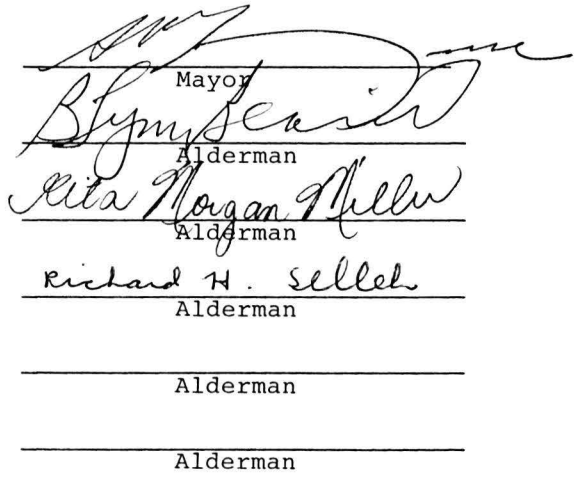 Mayor
B Lynn
Alderman
Rita Morgan Miller
Alderman
Richard H. Selleh
Alderman
Alderman
Alderman